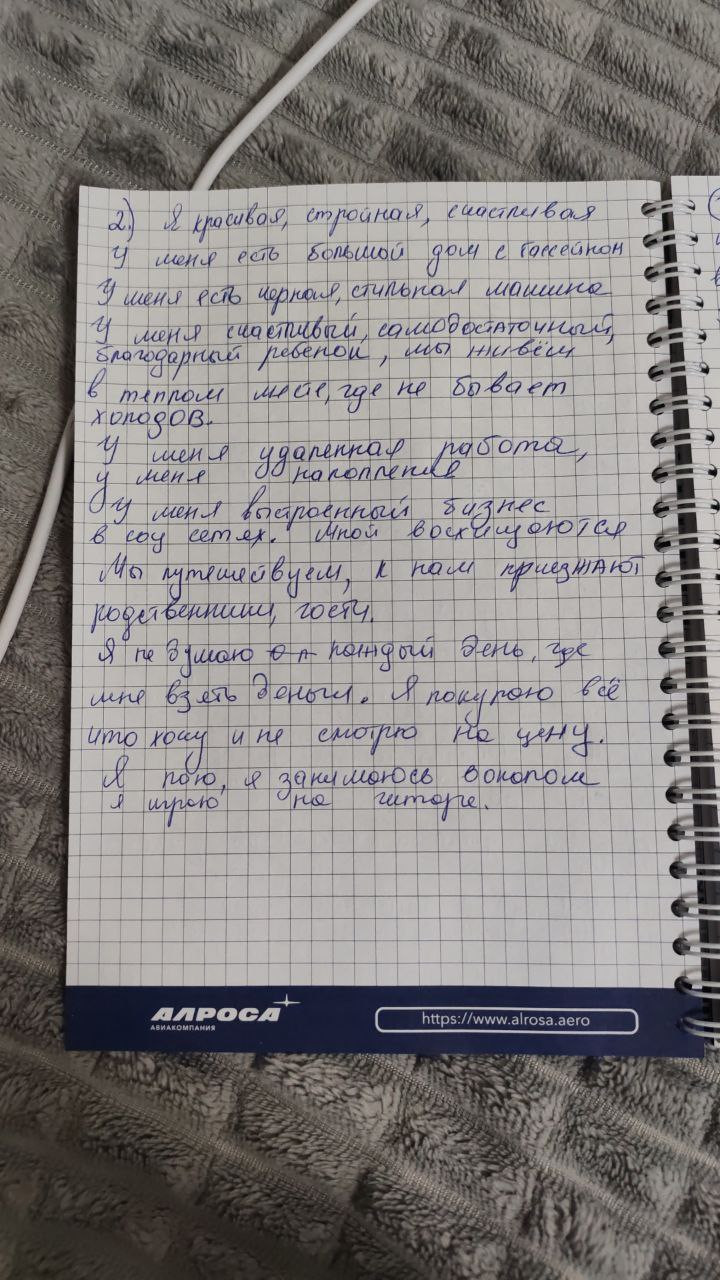 2.) Я красивая, стройная, счастливая
У меня есть большой дом с бассейном
У меня есть черная, стильная машина
У меня счастливый, самодостаточный,
благодарный ребенок, мы живём
в теплом месте, где не бывает
холодов.
У меня удаленная работа,
у меня накопления
У меня выстроенный бизнес
в соц сетях. Мной восхищаются
Мы путешествуем, к нам приезжают
родственники, гости.
Я не думаю каждый день, где
мне взять деньги. Я покупаю всё
что хочу и не смотрю на цену.
Я пою, я занимаюсь вокалом
я играю на гитаре.
АЛРОСА
АВИАКОМПАНИЯ
https://www.alrosa.aero